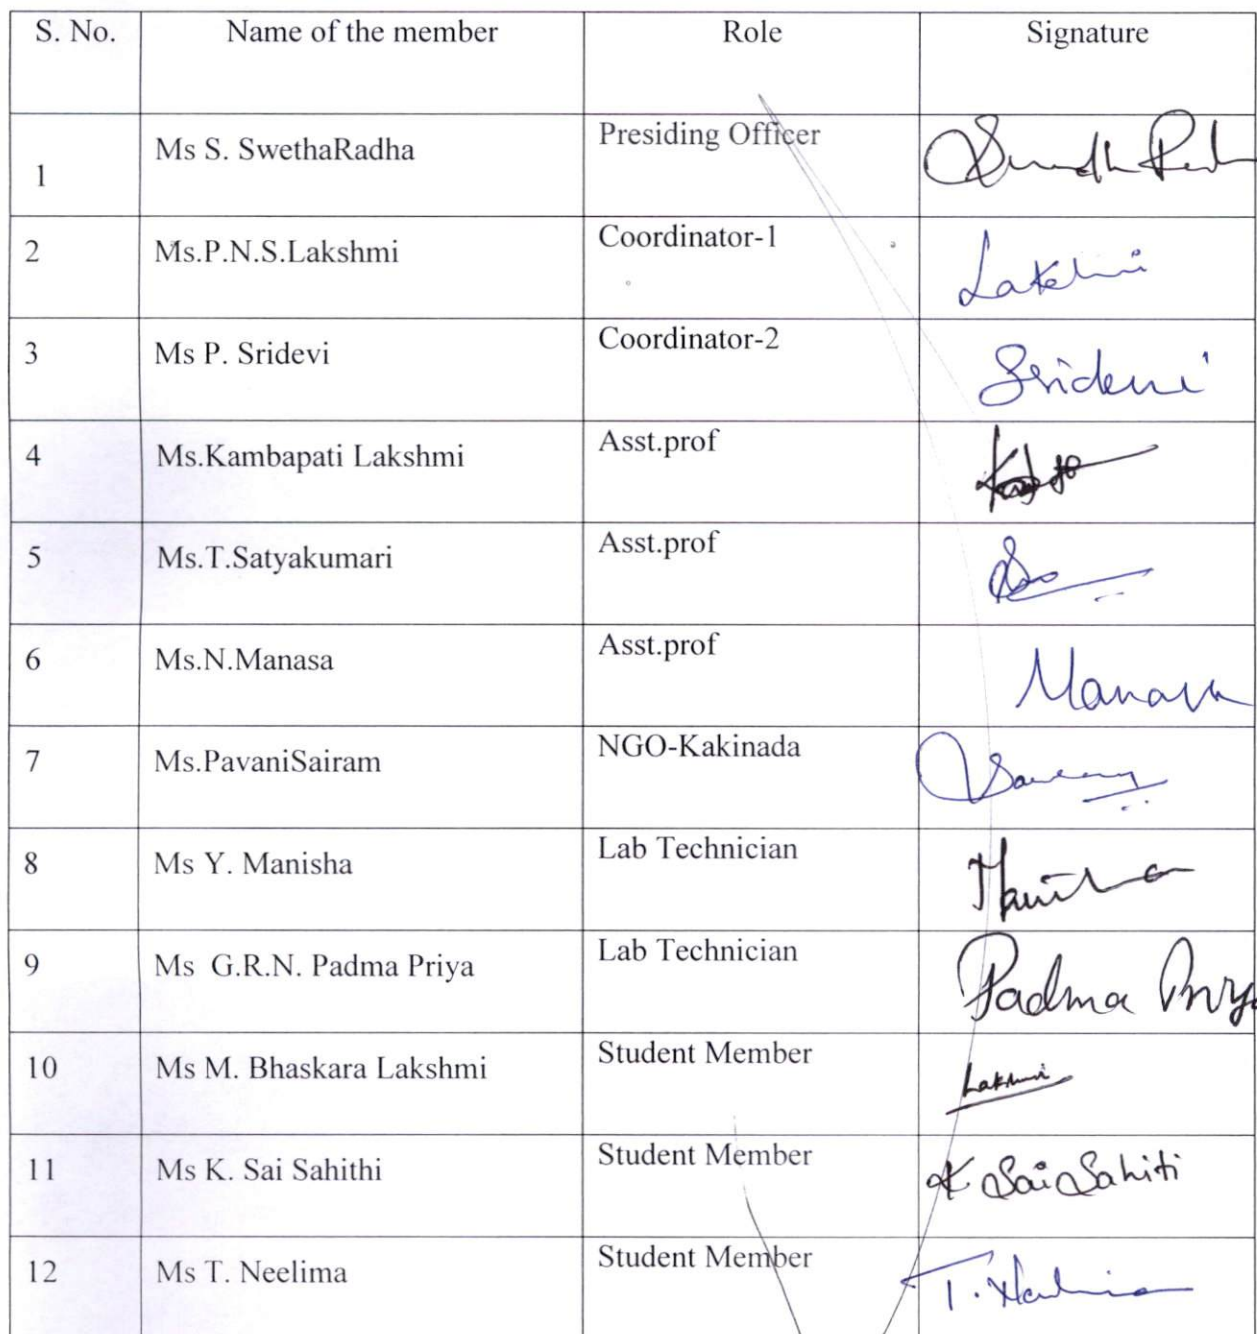 S. No. Name of the member Role Signature
1 Ms S. SwethaRadha Presiding Officer
2 Ms.P.N.S.Lakshmi Coordinator-1 Lakshmi
3 Ms P. Sridevi Coordinator-2 Sridevi
4 Ms.Kambapati Lakshmi Asst.prof
5 Ms.T.Satyakumari Asst.prof
6 Ms.N.Manasa Asst.prof Manasa
7 Ms.PavaniSairam NGO-Kakinada
8 Ms Y. Manisha Lab Technician Manisha
9 Ms G.R.N. Padma Priya Lab Technician Padma Priya
10 Ms M. Bhaskara Lakshmi Student Member Lakshmi
11 Ms K. Sai Sahithi Student Member K Sai Sahiti
12 Ms T. Neelima Student Member